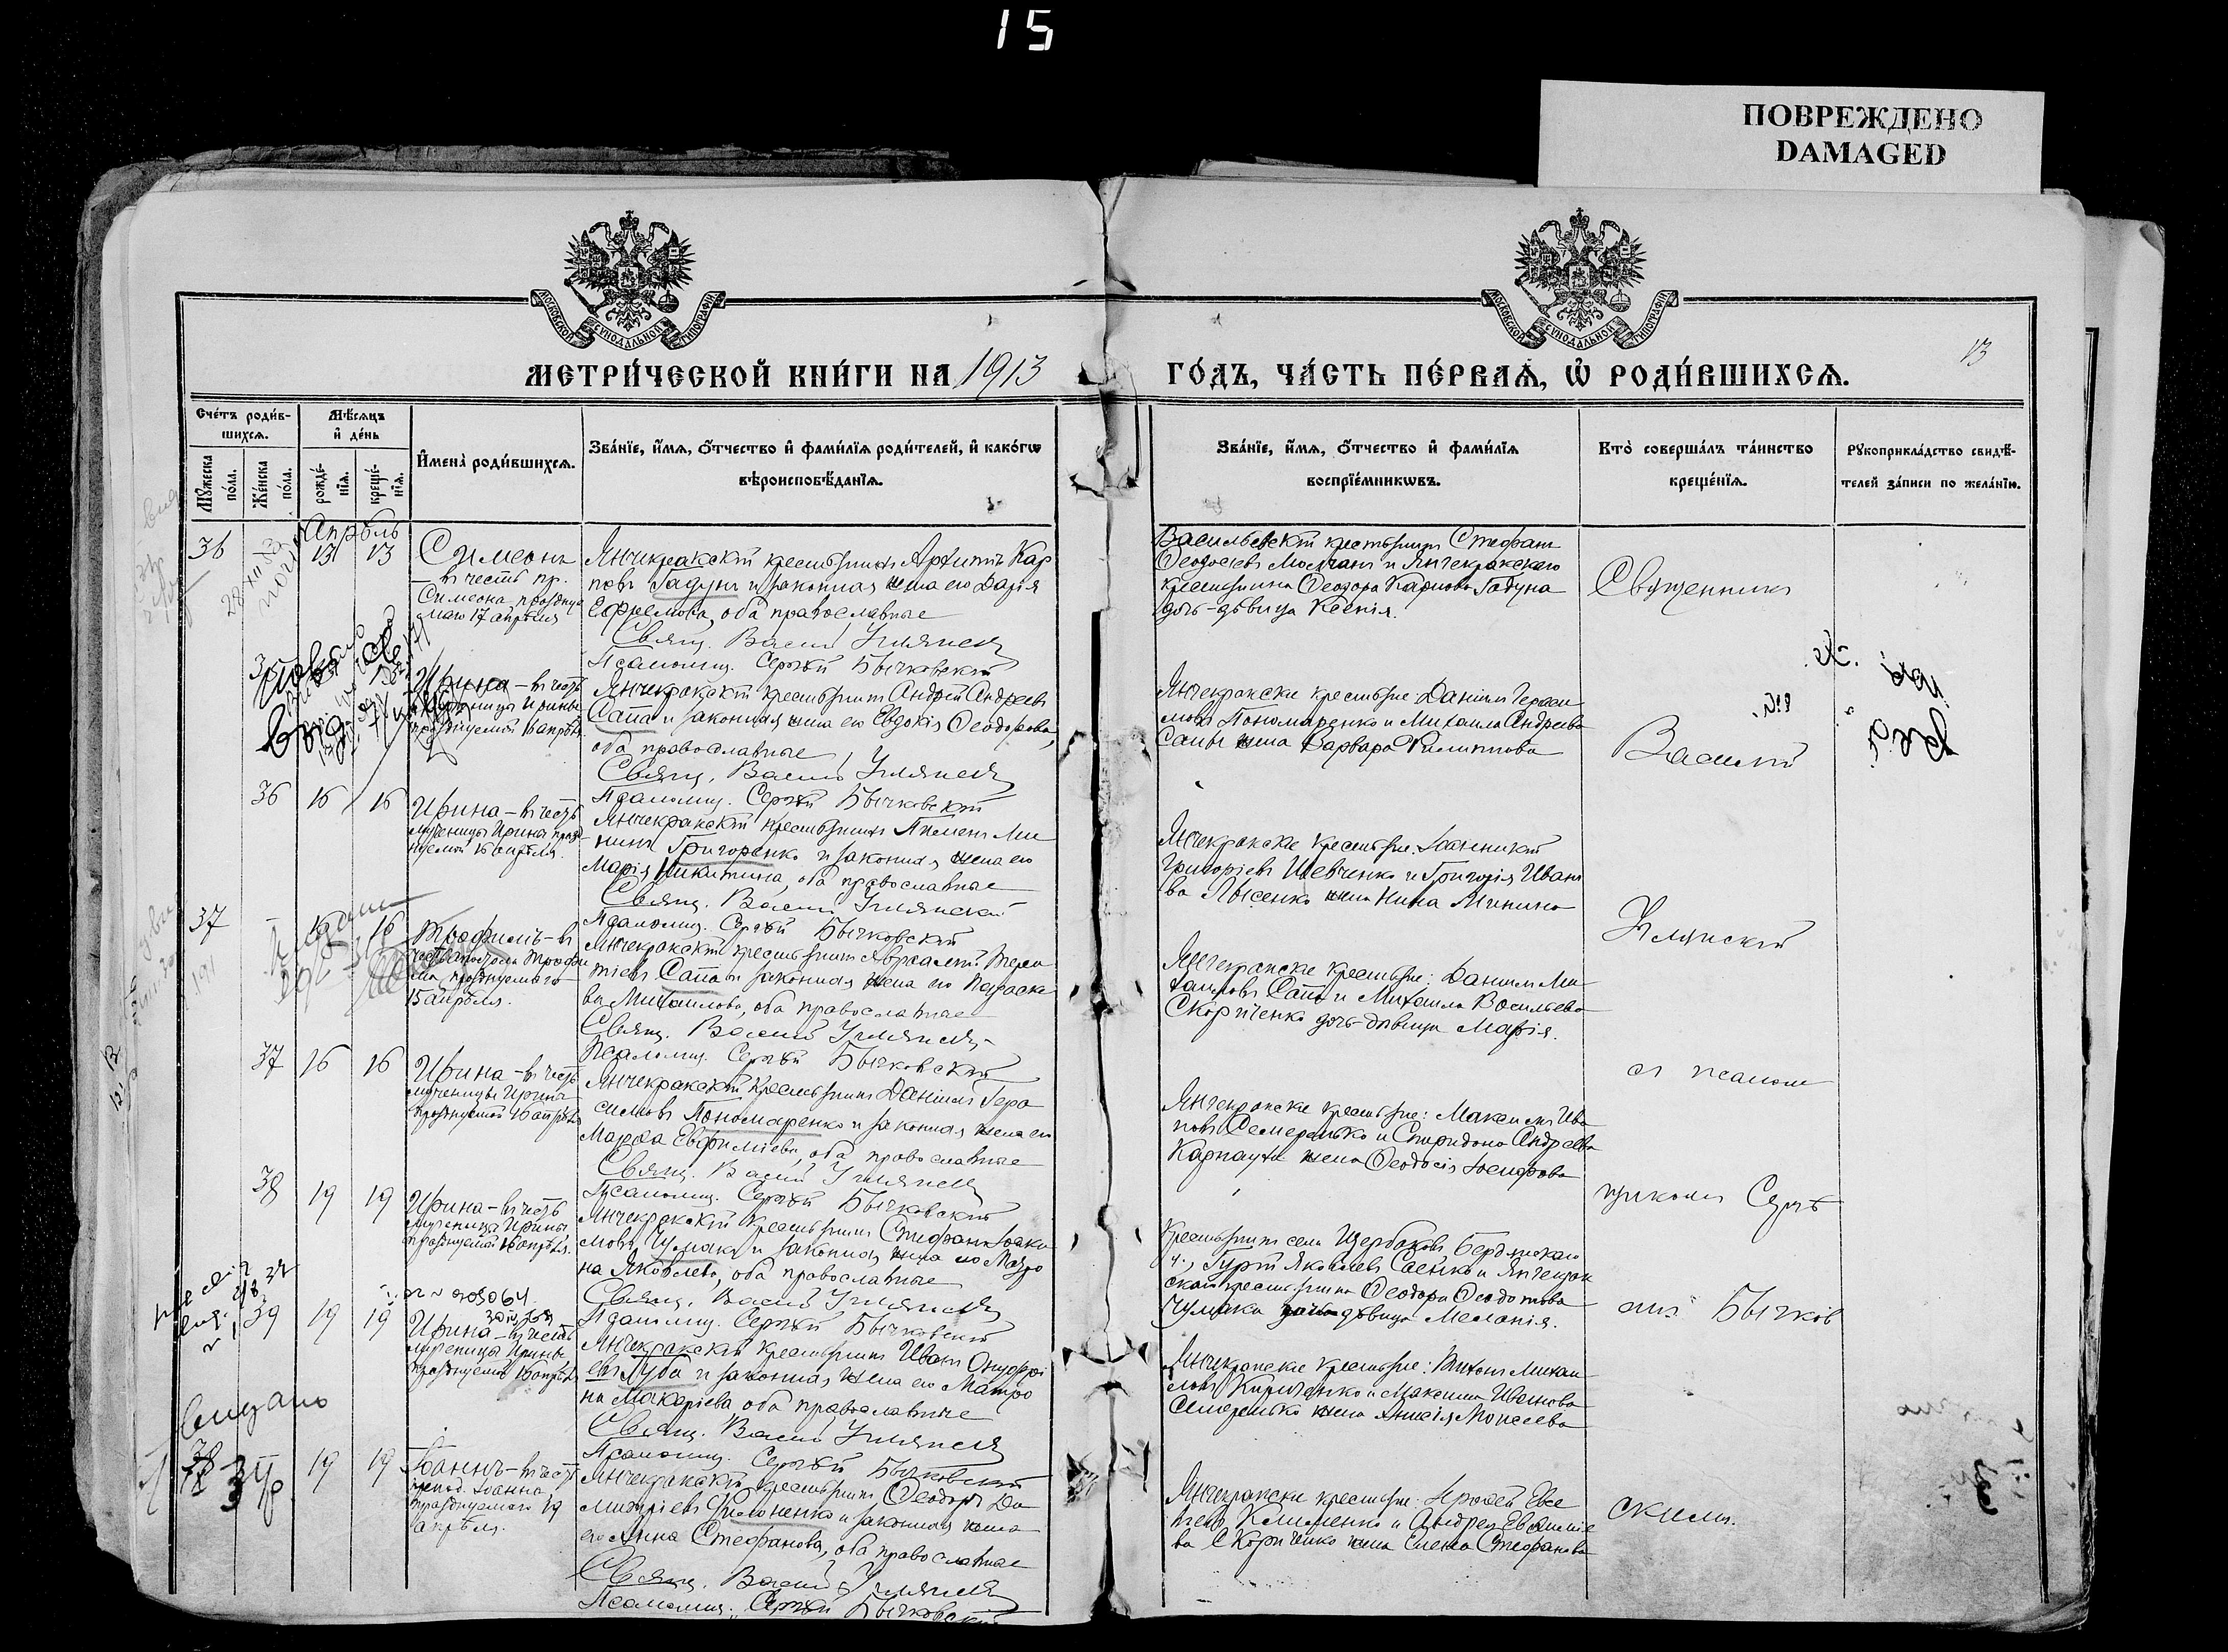 15
ПОВРЕЖДЕНО
DAMAGED
МОСКОВСКОЙ СѴНОДАЛЬНОЙ ТИПОГРАФІИ
МОСКОВСКОЙ СѴНОДАЛЬНОЙ ТИПОГРАФІИ
МЕТРИ́ЧЕСКОЙ КНИ́ГИ НА 1913
ГО́ДЪ, ЧА́СТЬ ПЕ́РВАЯ, Ѡ РОДИ́ВШИХСЯ.
13
Сче́тъ роди́в-
шихся.
Мѣ́сяцъ
и҆ де́нь
Мꙋ́жеска
по́ла.
Же́нска
по́ла.
рожде́-
нїя.
креще́-
нїя.
И҆мена̀ роди́вшихся.
Зва́нїе, и҆́мя, ѻ҆́тчество и҆ фами́лїя роди́телей, и҆ како́гѡ
вѣроисповѣ́данїя.
Зва́нїе, и҆́мя, ѻ҆́тчество и҆ фами́лїя
воспрїе́мникѡвъ.
Кто̀ соверша́лъ та́инство
креще́нїя.
Рꙋкоприкла́дство свидѣ́-
телей за́писи по жела́нїю.
Апрѣль
36 13 13
Симеонъ
въ честь пр.
Симеона, празднуе
маго 17 апрѣля
Янчекракскій крестьянинъ Архипъ Кар
повъ Гадунъ и законная жена его Дарія
Ефремова, оба православные
Свящ. Василій Улянскій
Псаломщ. Сергѣй Бычковскій
Васильевскій крестьянинъ Стефанъ
Ѳеодосіевъ Молчанъ и Янчекракскаго
крестьянина Ѳеодора Карпова Гадуна
дочь-дѣвица Ксенія.
Священникъ
Ирина - въ честь
мученицы Ирины
празднуемой 16 апрѣля
Янчекракскій крестьянинъ Андрей Андреевъ
Сапа и законная жена его Евдокія Ѳеодорова,
оба православные
Свящ. Василій Улянскій
Псаломщ. Сергѣй Бычковскій
Янчекракскіе крестьяне: Даніилъ Гераси
мовъ Пономаренко и Михаила Андреева
Сапы жена Варвара Филиппова
Василій
36 16 16
Ирина - въ честь
мученицы Ирины празд-
нуемой 16 апрѣля.
Янчекракскій крестьянинъ Пименъ Ми
нинъ Григоренко и законная жена его
Марія Никитина, оба православные
Свящ. Василій Улянскій
Псаломщ. Сергѣй Бычковскій
Янчекракскіе крестьяне: Іоанникій
Григоріевъ Шевченко и Григорія Ивано
ва Лысенко жена Нина Минина
Улянскій
37 16 16
Трофимъ - въ
честь апостола Трофи
ма, празднуемаго
15 апрѣля.
Янчекракскій крестьянинъ Авраамій Терен
тіевъ Сапа и законная жена его Параске
ва Михаилова, оба православные
Свящ. Василій Улянскій
Псаломщ. Сергѣй Бычковскій
Янчекракскіе крестьяне: Даніилъ Ми
хаиловъ Сапа и Михаила Васильева
Скориченко дочь-дѣвица Марія.
37 16 16
Ирина - въ честь
мученицы Ирины
празднуемой 16 апрѣля
Янчекракскій крестьянинъ Даніилъ Гера
симовъ Пономаренко и законная жена его
Марѳа Евфиміева, оба православные
Свящ. Василій Улянскій
Псаломщ. Сергѣй Бычковскій
Янчекракскіе крестьяне: Максимъ Ива
новъ Семеренко и Спиридона Андреева
Карпауха жена Ѳеодосія Іосифова
съ псалом
38 19 19
Ирина - въ честь
мученицы Ирины
празднуемой 16 апрѣля.
Янчекракскій крестьянинъ Стефанъ Іоаки
мовъ Чумакъ и законная жена его Матро
на Яковлева, оба православные
Свящ. Василій Улянскій
Псаломщ. Сергѣй Бычковскій
Крестьянинъ села Щербаковъ, Бердянскаго
у., Гурій Яковлевъ Саенко и Янчекрак
скаго крестьянина Ѳеодора Ѳеодотова
Чумака дочь-дѣвица Меланія.
щикомъ Сергѣ
39 19 19
Ирина - въ честь
мученицы Ирины
празднуемой 16 апрѣля
Янчекракскій крестьянинъ Иванъ Онуфрі
евъ Луба и законная жена его Матро
на Макаріева оба православные
Свящ. Василій Улянскій
Псаломщ. Сергѣй Бычковскій
Янчекракскіе крестьяне: Титъ Михаи
ловъ Кириченко и Максима Иванова
Семеренко жена Анисія Моисеева
емъ Бычков
видано
38 19 19
Іоаннъ - въ честь
препод. Іоанна
празднуемаго 19
апрѣля.
Янчекракскій крестьянинъ Ѳеодоръ Ди
митріевъ Филоненко и законная жена
его Анна Стефанова, оба православные
Свящ. Василій Улянскій
Псаломщ. Сергѣй Бычковскій
Янчекракскіе крестьяне: Евсе
Клименко и Андрея Евфиміе
ва Скориченко жена Елена Стефанова
скимъ.